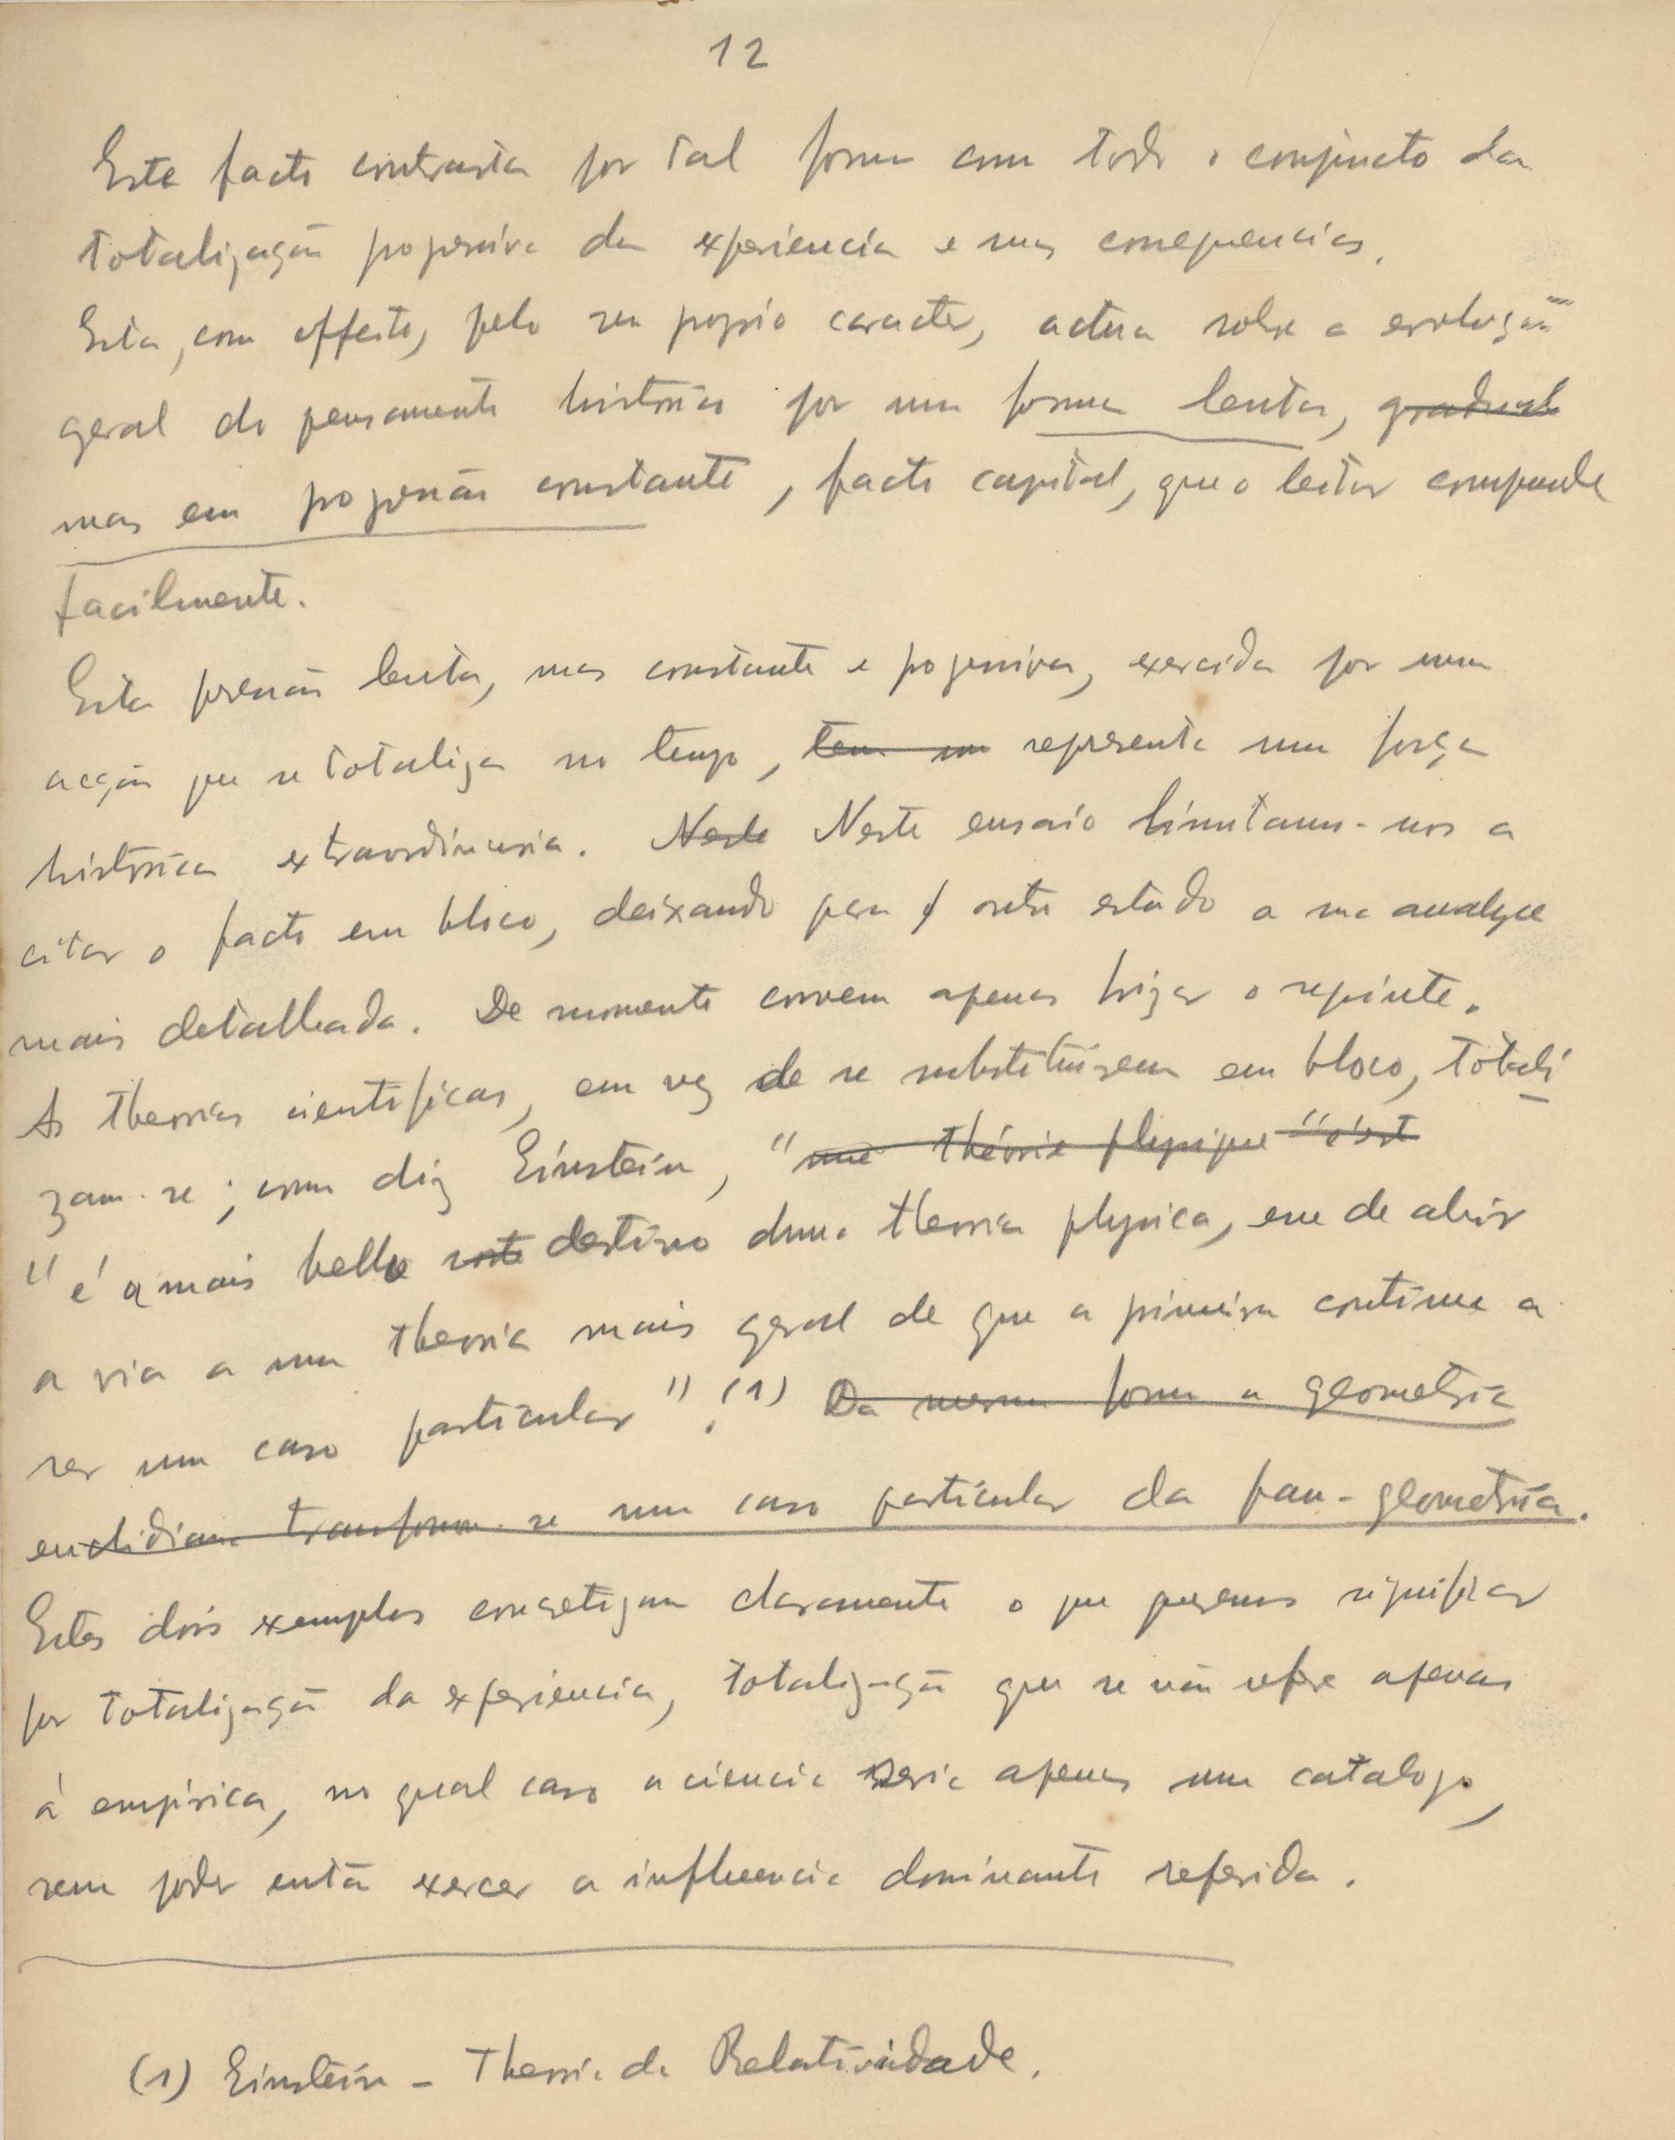 12
Este facto contrasta por tal forma com todo o conjuncto da
totalização progressiva da experiencia e suas consequencias.
Esta, com effeito, pelo seu proprio caracter, actua sobre a evolução
geral do pensamento historico por uma forma lenta, gradual
mas em progressão constante, facto capital, que o leitor comprende
facilmente.
Esta pressão lenta, mas constante e progressiva, exercida por uma
acção que se totaliza no tempo, tem um representa uma força
historica extraordinaria. Neste Neste ensaio limitamo-nos a
citar o facto em bloco, deixando para outro estudo a sua analyse
mais detalhada. De momento convem apenas frizar o seguinte.
As theorias scientificas, em vez de se substituirem em bloco, totali
zam-se; como diz Einstein, "une théorie physique "c'est
"é o mais bello sorte destino duma theoria physica, esse de abrir
a via a uma theoria mais geral de que a primeira continue a
ser um caso particular".(1) Da mesma forma a geometria
euclidiana transforma-se num caso particular da pan-geometria.
Estes dois exemplos concretizam claramente o que queremos significar
por totalização da experiencia, totalização que se não refere apenas
á empirica, no qual caso a ciencia seria apenas um catalogo,
sem poder então exercer a influencia dominante referida.
(1) Einstein - Theoria da Relatividade.